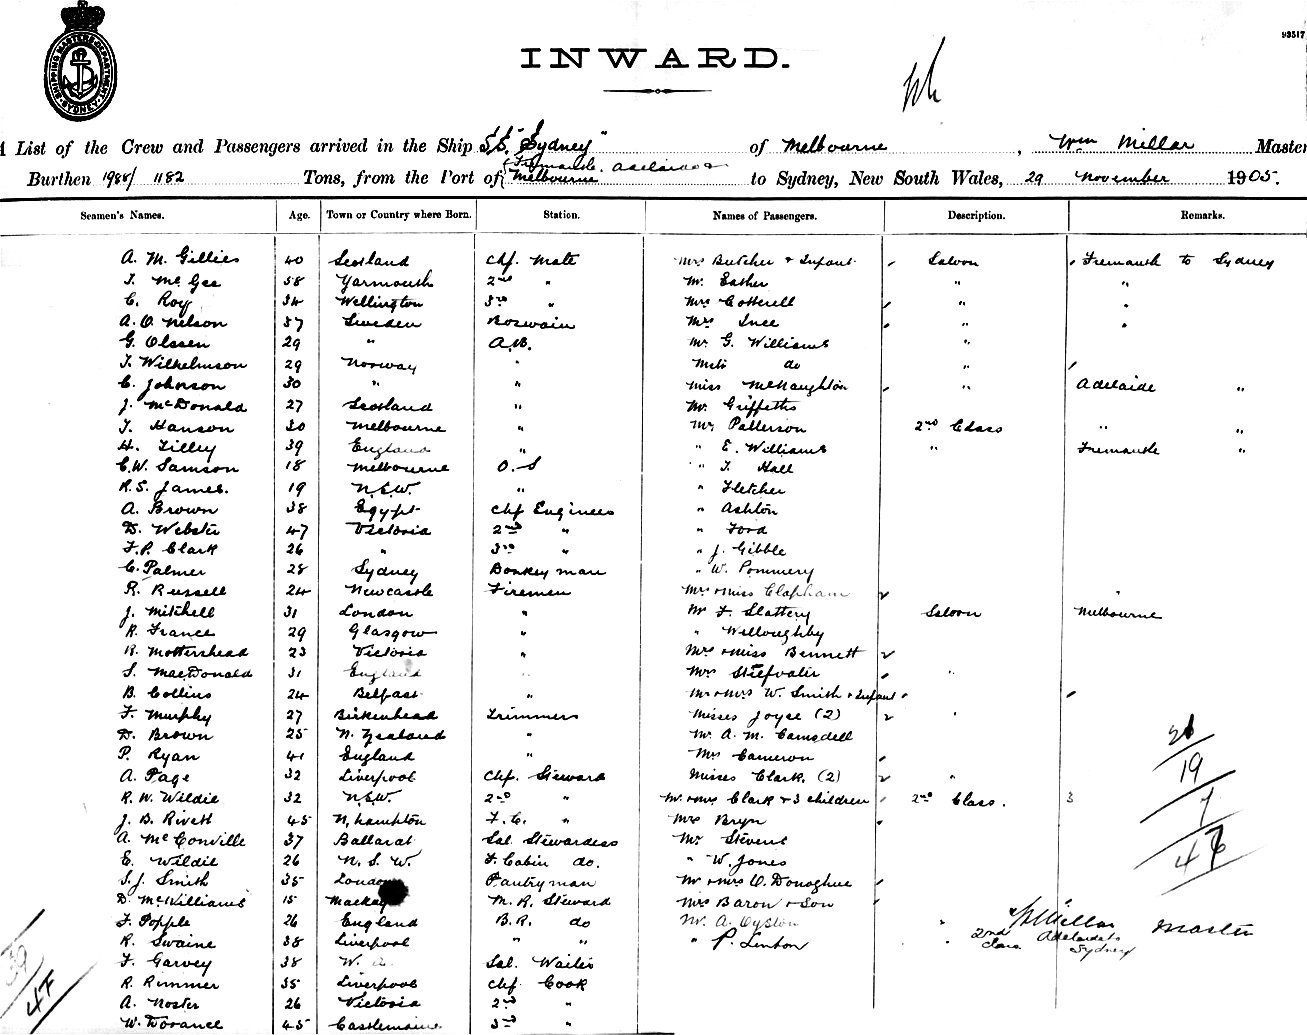 93517
SHIPPING MASTERS DEPARTMENT SYDNEY
INWARD.
A List of the Crew and Passengers arrived in the Ship "S.S. Sydney" of Melbourne, Wm Millar Master
Fremantle. Adelaide &
Burthen 1985/1182 Tons, from the Port of Melbourne to Sydney, New South Wales, 29 November 1905.
Seamen's Names. Age. Town or Country where Born. Station. Names of Passengers. Description. Remarks.
A. M. Gillies 40 Scotland Chf. Mate Mrs Butcher & Infant Saloon Fremantle to Sydney
T. McGee 58 Yarmouth 2nd " Mr. Esther " "
C. Roy 34 Wellington 3rd " Mrs Cotterell " "
A. O. Nelson 37 Sweden Boswain Mrs Ince " "
G. Olssen 29 " A.B. Mr. G. Williams "
T. Wilhelmson 29 Norway " Mrs do "
C. Johnson 30 " " Miss McNaughton " Adelaide "
J. McDonald 27 Scotland " Mr. Griffeths
T. Hanson 30 Melbourne " Mr. Patterson 2nd Class " "
H. Tilley 39 England " " E. Williams " Fremantle "
C.W. Samson 18 Melbourne O.S " T. Hall
R.S. James. 19 N.S.W. " " Fletcher
A. Brown 38 Egypt Chf Engineer " Ashton
D. Webster 47 Victoria 2nd " " Ford
F.P. Clark 26 " 3rd " " J. Gibble
C. Palmer 28 Sydney Donkeyman " W. Pommery
R. Russell 24 Newcastle Firemen Mrs & Miss Clapham "
J. Mitchell 31 London " Mr F. Slattery Saloon Melbourne
R. France 29 Glasgow " " Willoughby
R. Mottershead 23 Victoria " Mrs & Miss Bennett
S. MacDonald 31 England " Mrs Stiefvater "
B. Collins 24 Belfast " Mr & Mrs W. Smith & Infant
F. Murphy 27 Birkenhead Trimmers Misses Joyce (2) "
D. Brown 25 N. Zealand " Mr. A. M. Camsdell
P. Ryan 41 England " Mrs Cameron
A. Page 32 Liverpool Chf. Steward Misses Clark (2) "
R. W. Wildie 32 N.S.W. 2nd " Mr. & Mrs Clark & 3 children 2nd Class. 3
J. B. Rivett 45 N,hampton F.C. " Mrs Bryn
A. McConville 37 Ballarat Sal. Stewardess Mr. Stevens
E. Wildie 26 N. S. W. F. Cabin do. " W. Jones
S. J. Smith 35 London Pantryman Mr & Mrs O. Donoghue
D. McWilliams 15 Mackay M. R. Steward Mrs Baron & Son
F. Popple 26 England B.R. do Mr. A. Oyston
R. Swaine 38 Liverpool " " " P. Linton
F. Garvey 38 W. A. Sal. Waiter
R. Rimmer 35 Liverpool Chf Cook
A. Noster 26 Victoria 2nd "
W. Dorance 45 Castlemaine 3rd "
19
7
WMillar Master
2nd Class Adelaide to Sydney
39